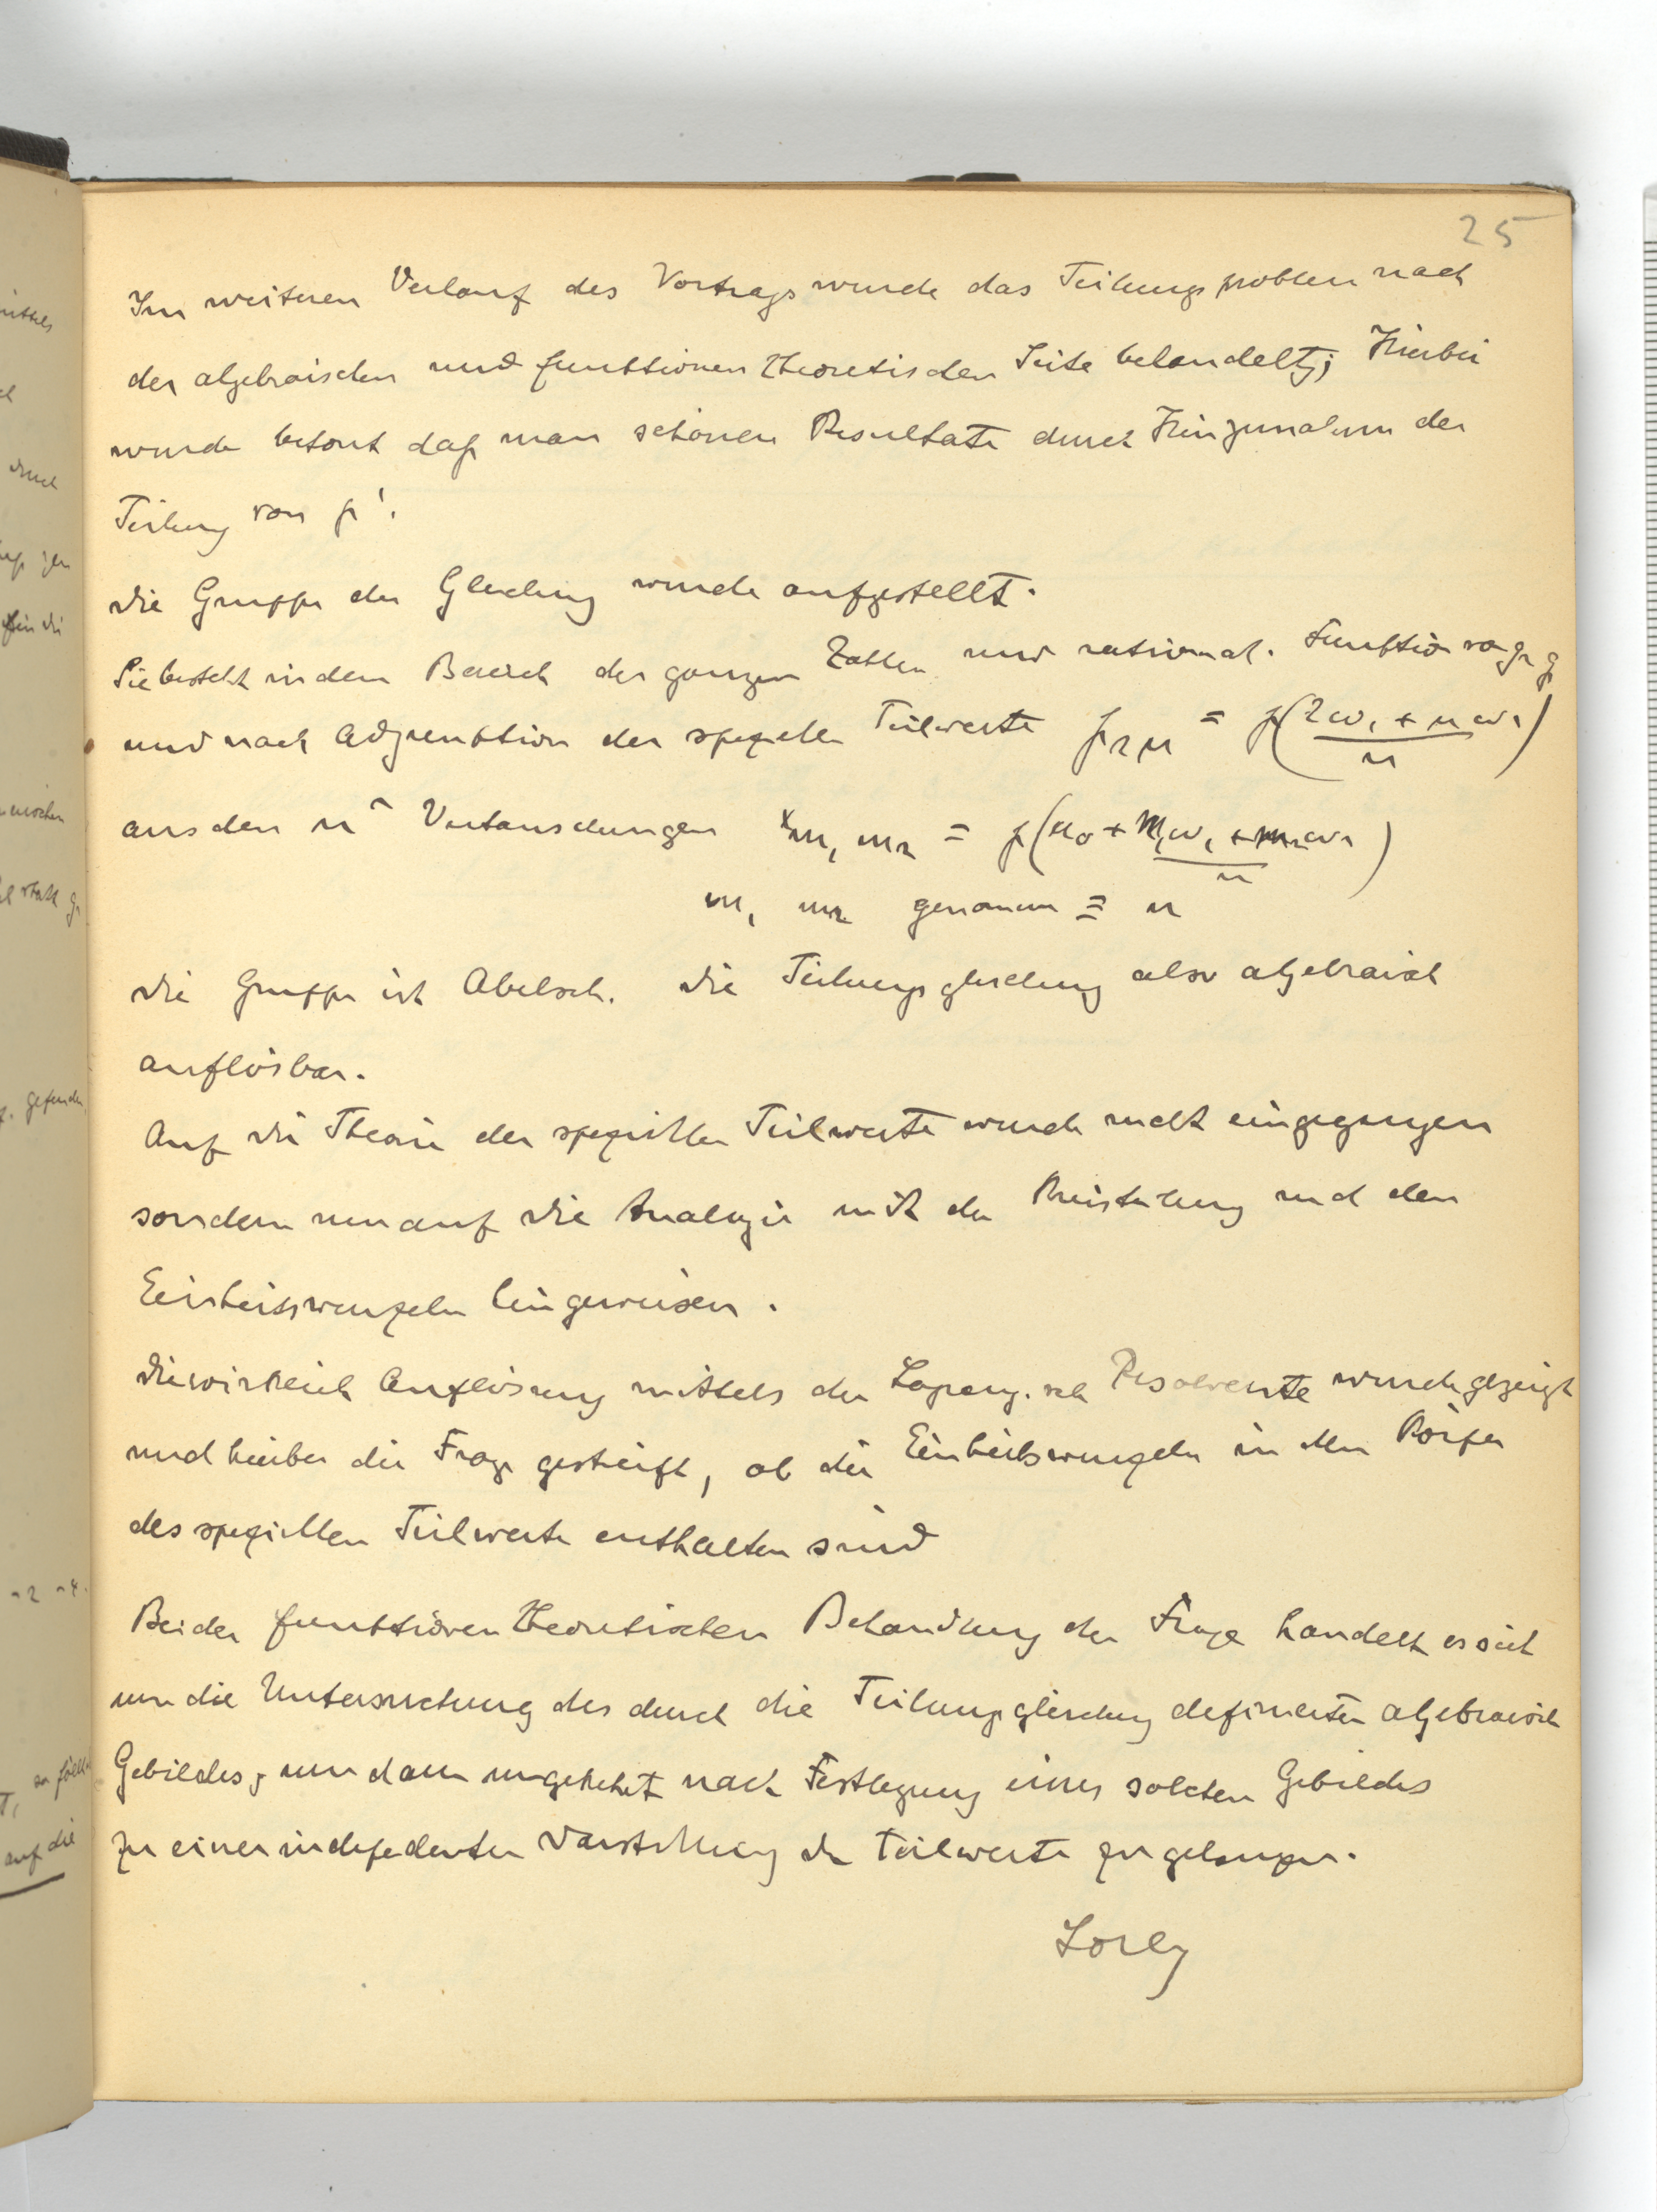 25
Im weiteren Verlauf des Vortrags wurde das Teilungsproblem nach
der algebraischen und funktionentheoretischen Seite behandelt; Hierbei
wurde betont daß man schönere Resultate durch Hinzunahme der
Teilung von ℘'.
Die Gruppe der Gleichung wurde aufgestellt.
Sie besteht in dem Bereich der ganzen Zahlen und rational. Funktion von g₂ g₃
und nach Adjunktion der speziellen Teilwerte ℘λμ = ℘(λω₁ + μω₂ / n)
aus den n² Vertauschungen xm₁ m₂ = ℘(u₀ + m₁ω₁ + m₂ω₂ / n)
m₁ m₂ genommen ≡ n
Die Gruppe ist Abelsch. Die Teilungsgleichung also algebraisch
auflösbar.
Auf die Theorie der speziellen Teilwerte wurde nicht eingegangen
sondern nur auf die Analogie mit der Kreisteilung und den
Einheitswurzeln hingewiesen.
Die wirklich Auflösung mittels der Lagrang. sch Resolvente wurde gezeigt
und hierbei die Frage gestreift, ob die Einheitswurzeln in dem Körper
des speziellen Teilwerte enthalten sind
Bei der funktionentheoretischen Behandlung der Frage handelt es sich
um die Untersuchung des durch die Teilungsgleichung definierten algebraisch
Gebildes, um dann umgekehrt nach Festlegung eines solchen Gebildes
zu einer independenten Darstellung der Teilwerte zu gelangen.
Lorey